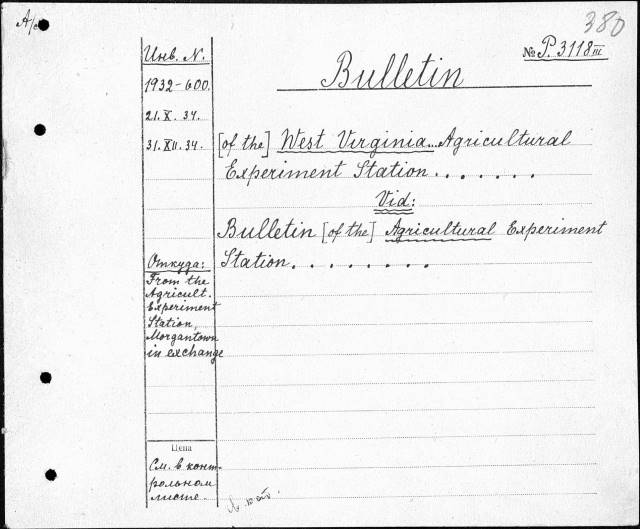 380
Инв. N.
№ P. 3118 III
Bulletin
1932-600.
21. X. 34.
31. XII. 34.
[of the] West Virginia...Agricultural
Experiment Station.......
Vid:
Bulletin [of the] Agricultural Experiment
Station........
Откуда:
From the
Agricult.
Experiment
Station,
Morgantown
in exchange
Цена
См. в конт-
рольном
листе.